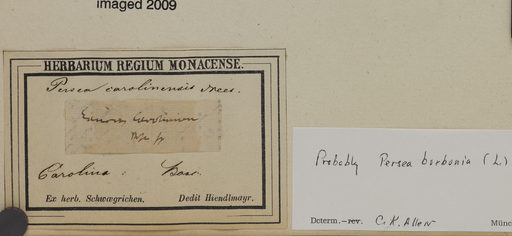 imaged 2009
HERBARIUM REGIUM MONACENSE.
Persea carolinensis Nees.
Laurus
Carolina: Bosc.
Ex herb. Schwægrichen. Dedit Hiendlmayr.
Probably Persea borbonia (L.)
Determ.—rev. C. K. Allen
Münc